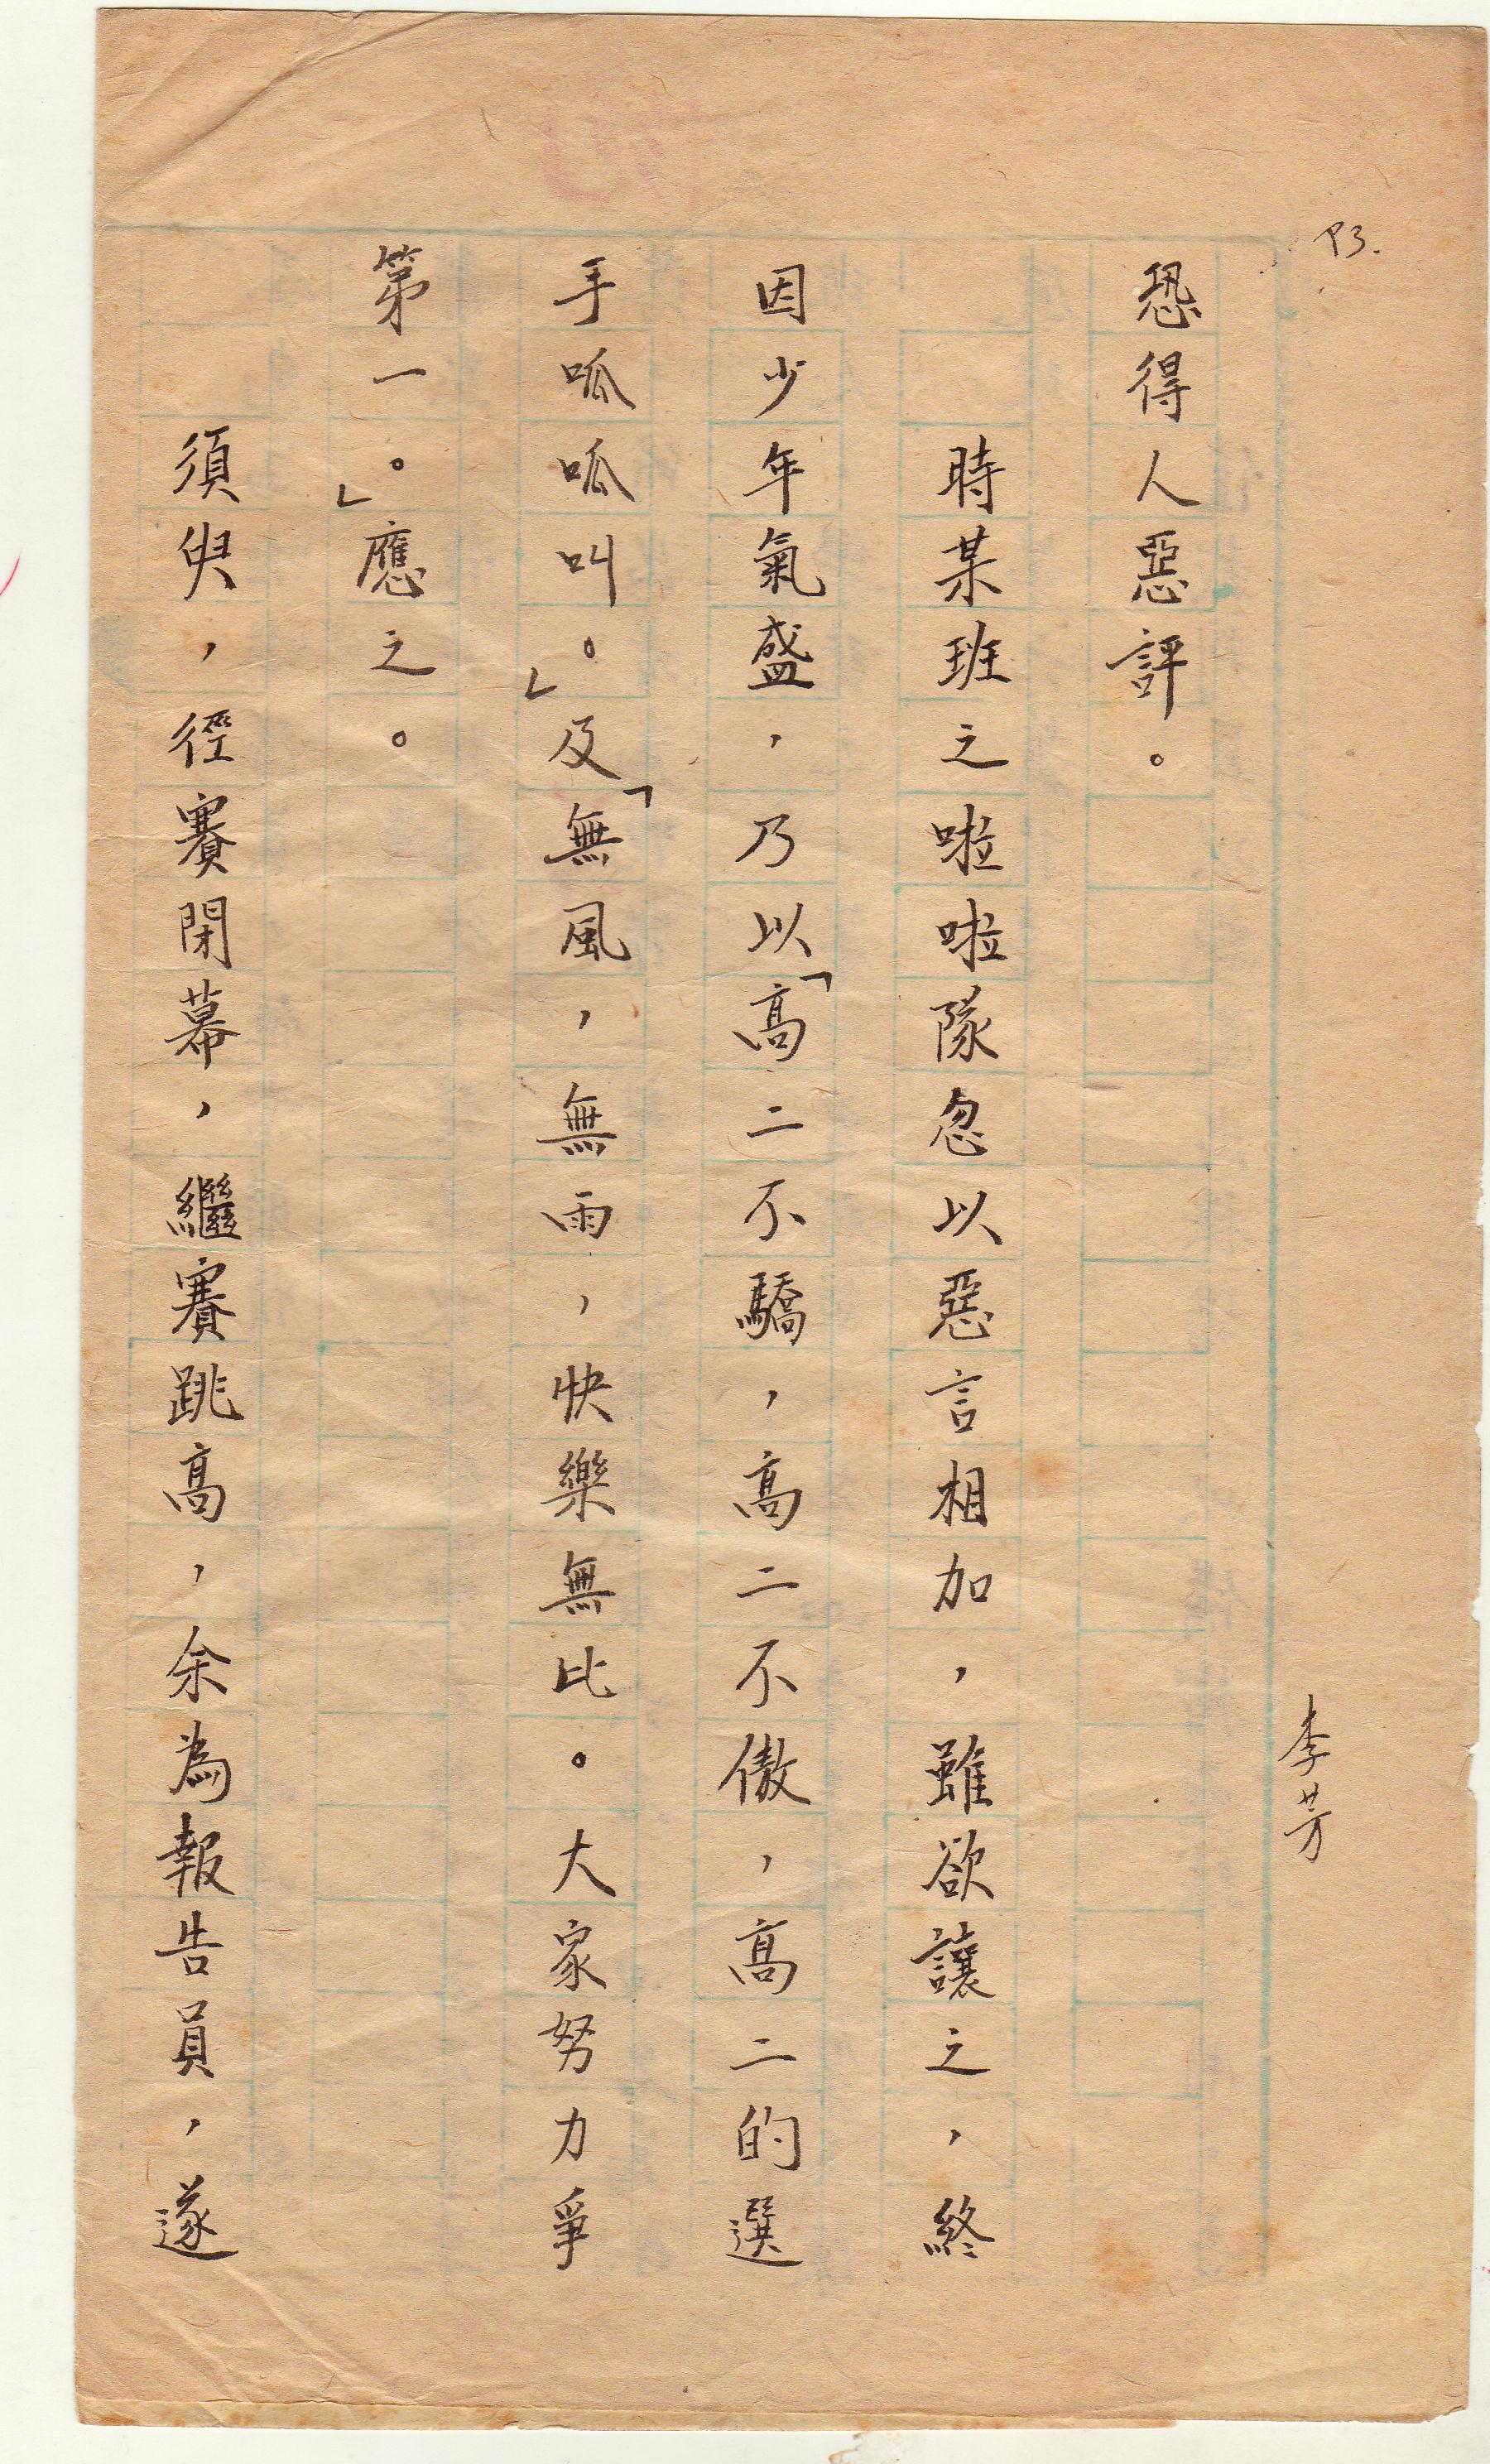 P3.
李芳
恐得人惡評。
時某班之啦啦隊忽以惡言相加，雖欲讓之，終
因少年氣盛，乃以「高二不驕，高二不傲，高二的選
手呱呱叫。」及「無風，無雨，快樂無比。大家努力爭
第一。」應之。
須臾，徑賽閉幕，繼賽跳高，余為報告員，遂